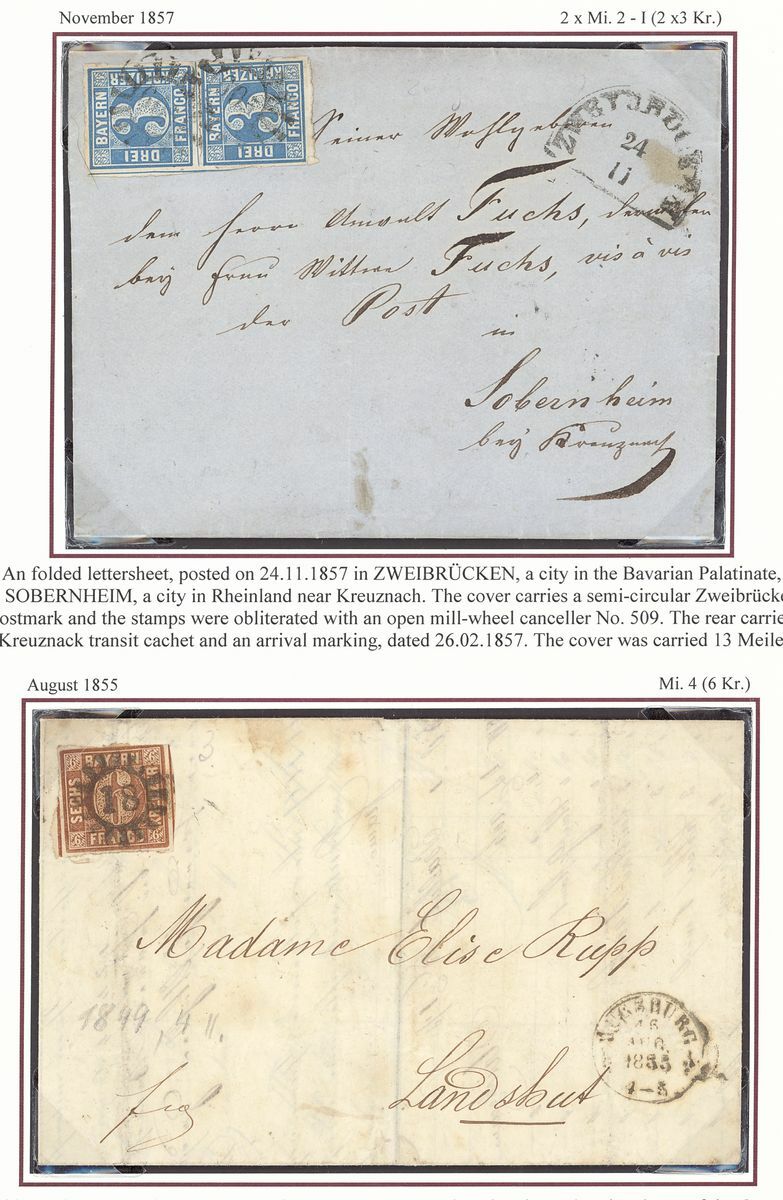 November 1857 2 x Mi. 2 - I (2 x3 Kr.)
BAYERN DREI FRANCO KREUZER 3
BAYERN DREI FRANCO KREUZER 3
ZWEYBRÜCKEN
24
11
Seiner Wohlgeboren
dem Herrn Anwalt Fuchs,
bey Frau Wittwe Fuchs, vis à vis
der Post
in
Sobernheim
bey Kreuznach
An folded lettersheet, posted on 24.11.1857 in ZWEIBRÜCKEN, a city in the Bavarian Palatinate,
SOBERNHEIM, a city in Rheinland near Kreuznach. The cover carries a semi-circular Zweibrücke
ostmark and the stamps were obliterated with an open mill-wheel canceller No. 509. The rear carrie
Kreuznack transit cachet and an arrival marking, dated 26.02.1857. The cover was carried 13 Meile
August 1855 Mi. 4 (6 Kr.)
BAYERN
SECHS 6 KREUZER
FRANCO
18
Madame Elise Rupp
AUGSBURG
AUG.
1855
4-5
1849
Landshut